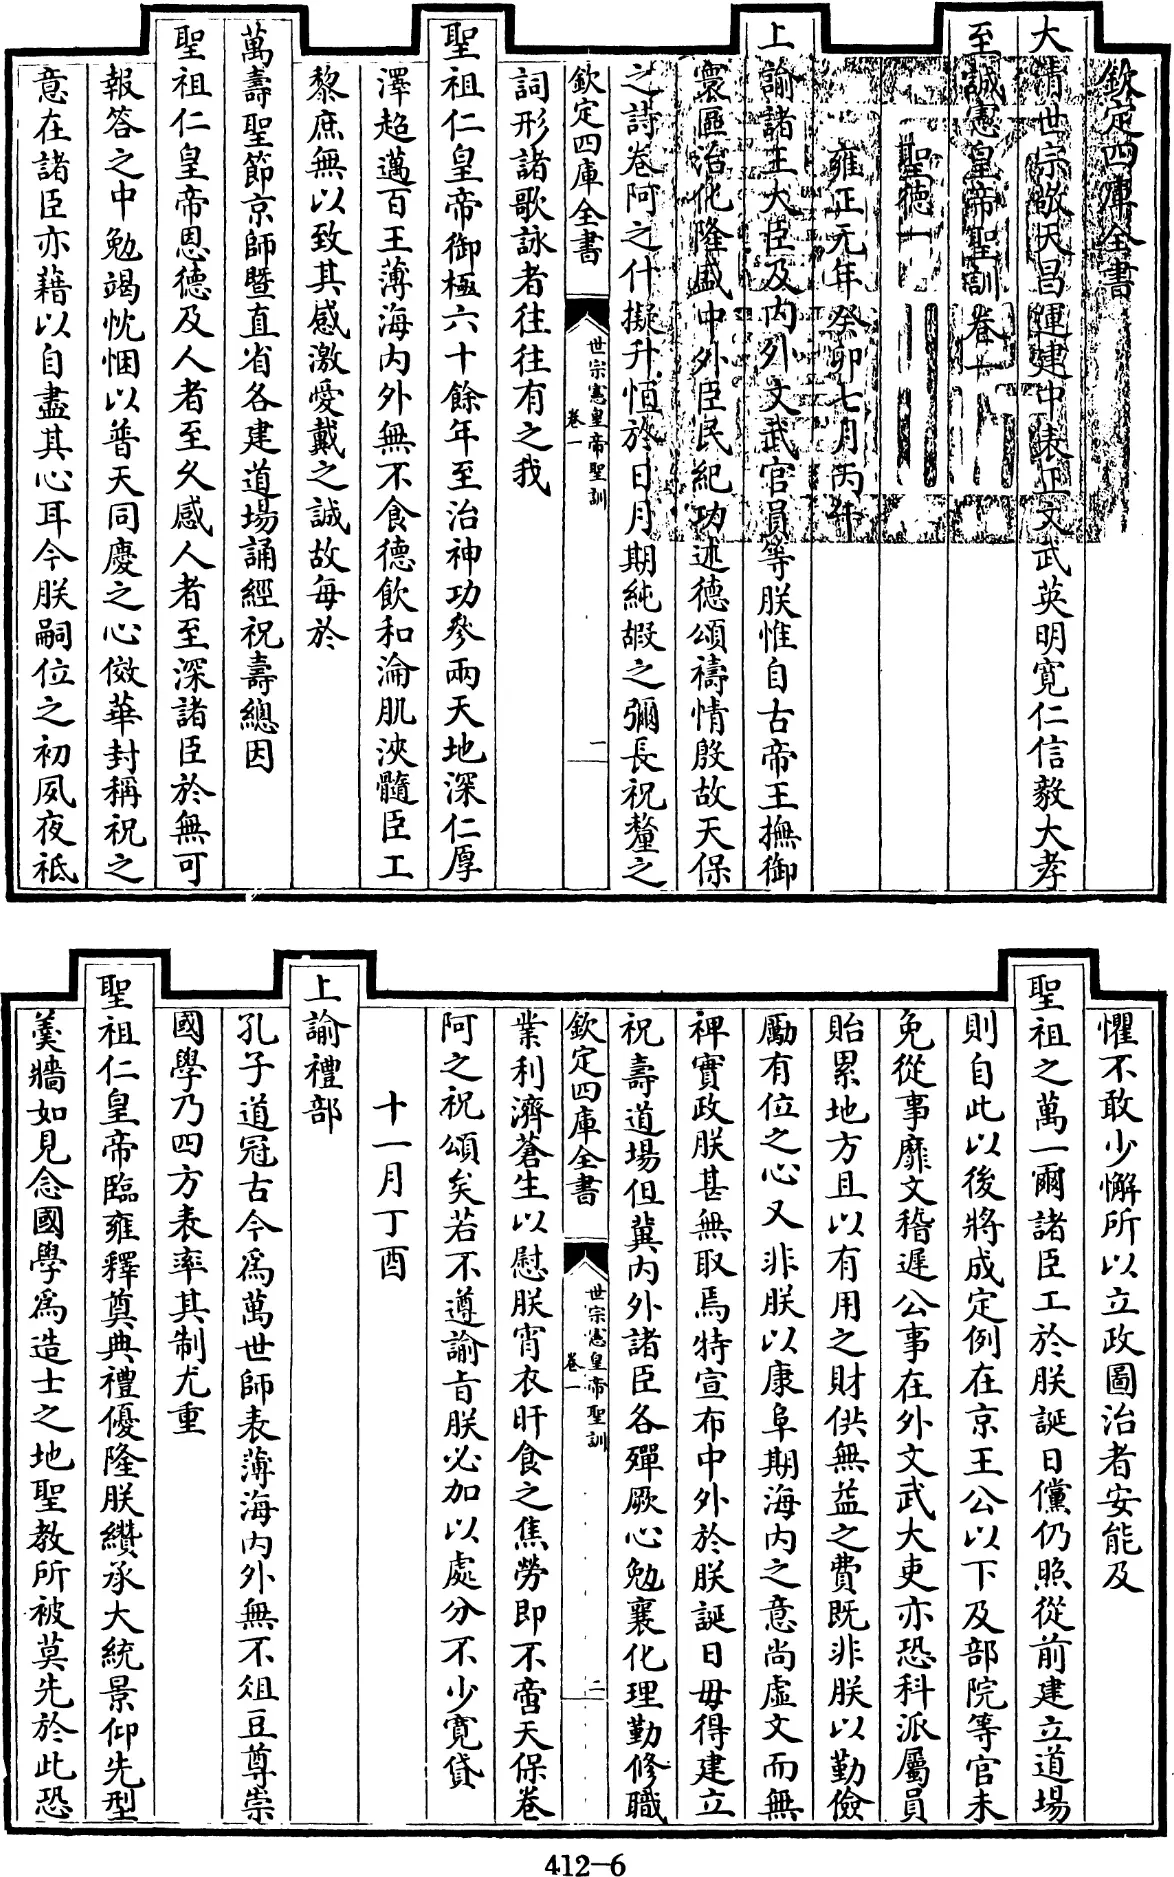 欽定四庫全書
大清世宗敬天昌運建中表正文武英明寬仁信毅大孝
至誠憲皇帝聖訓卷一
聖德一
雍正元年癸卯七月丙午
上諭諸王大臣及內外文武官員等朕惟自古帝王撫御
寰區治化隆盛中外臣民紀功述德頌禱情殷故天保
之詩卷阿之什擬升恒於日月期純嘏之彌長祝釐之
欽定四庫全書
世宗憲皇帝聖訓
卷一
一
詞形諸歌詠者往往有之我
聖祖仁皇帝御極六十餘年至治神功參兩天地深仁厚
澤超邁百王薄海內外無不食德飲和淪肌浹髓臣工
黎庶無以致其感激愛戴之誠故每於
萬壽聖節京師暨直省各建道場誦經祝壽總因
聖祖仁皇帝恩德及人者至久感人者至深諸臣於無可
報答之中勉竭忱悃以普天同慶之心傚華封稱祝之
意在諸臣亦藉以自盡其心耳今朕嗣位之初夙夜祇
懼不敢少懈所以立政圖治者安能及
聖祖之萬一爾諸臣工於朕誕日儻仍照從前建立道場
則自此以後將成定例在京王公以下及部院等官未
免從事靡文稽遲公事在外文武大吏亦恐科派屬員
貽累地方且以有用之財供無益之費既非朕以勤儉
勵有位之心又非朕以康阜期海內之意尚虛文而無
裨實政朕甚無取焉特宣布中外於朕誕日毋得建立
祝壽道場但冀內外諸臣各殫厥心勉襄化理勤修職
欽定四庫全書
世宗憲皇帝聖訓
卷一
二
業利濟蒼生以慰朕宵衣旰食之焦勞即不啻天保卷
阿之祝頌矣若不遵諭旨朕必加以處分不少寬貸
十一月丁酉
上諭禮部
孔子道冠古今為萬世師表薄海內外無不俎豆尊崇
國學乃四方表率其制尤重
聖祖仁皇帝臨雍釋奠典禮優隆朕纘承大統景仰先型
羹牆如見念國學為造士之地聖教所被莫先於此恐
412-6